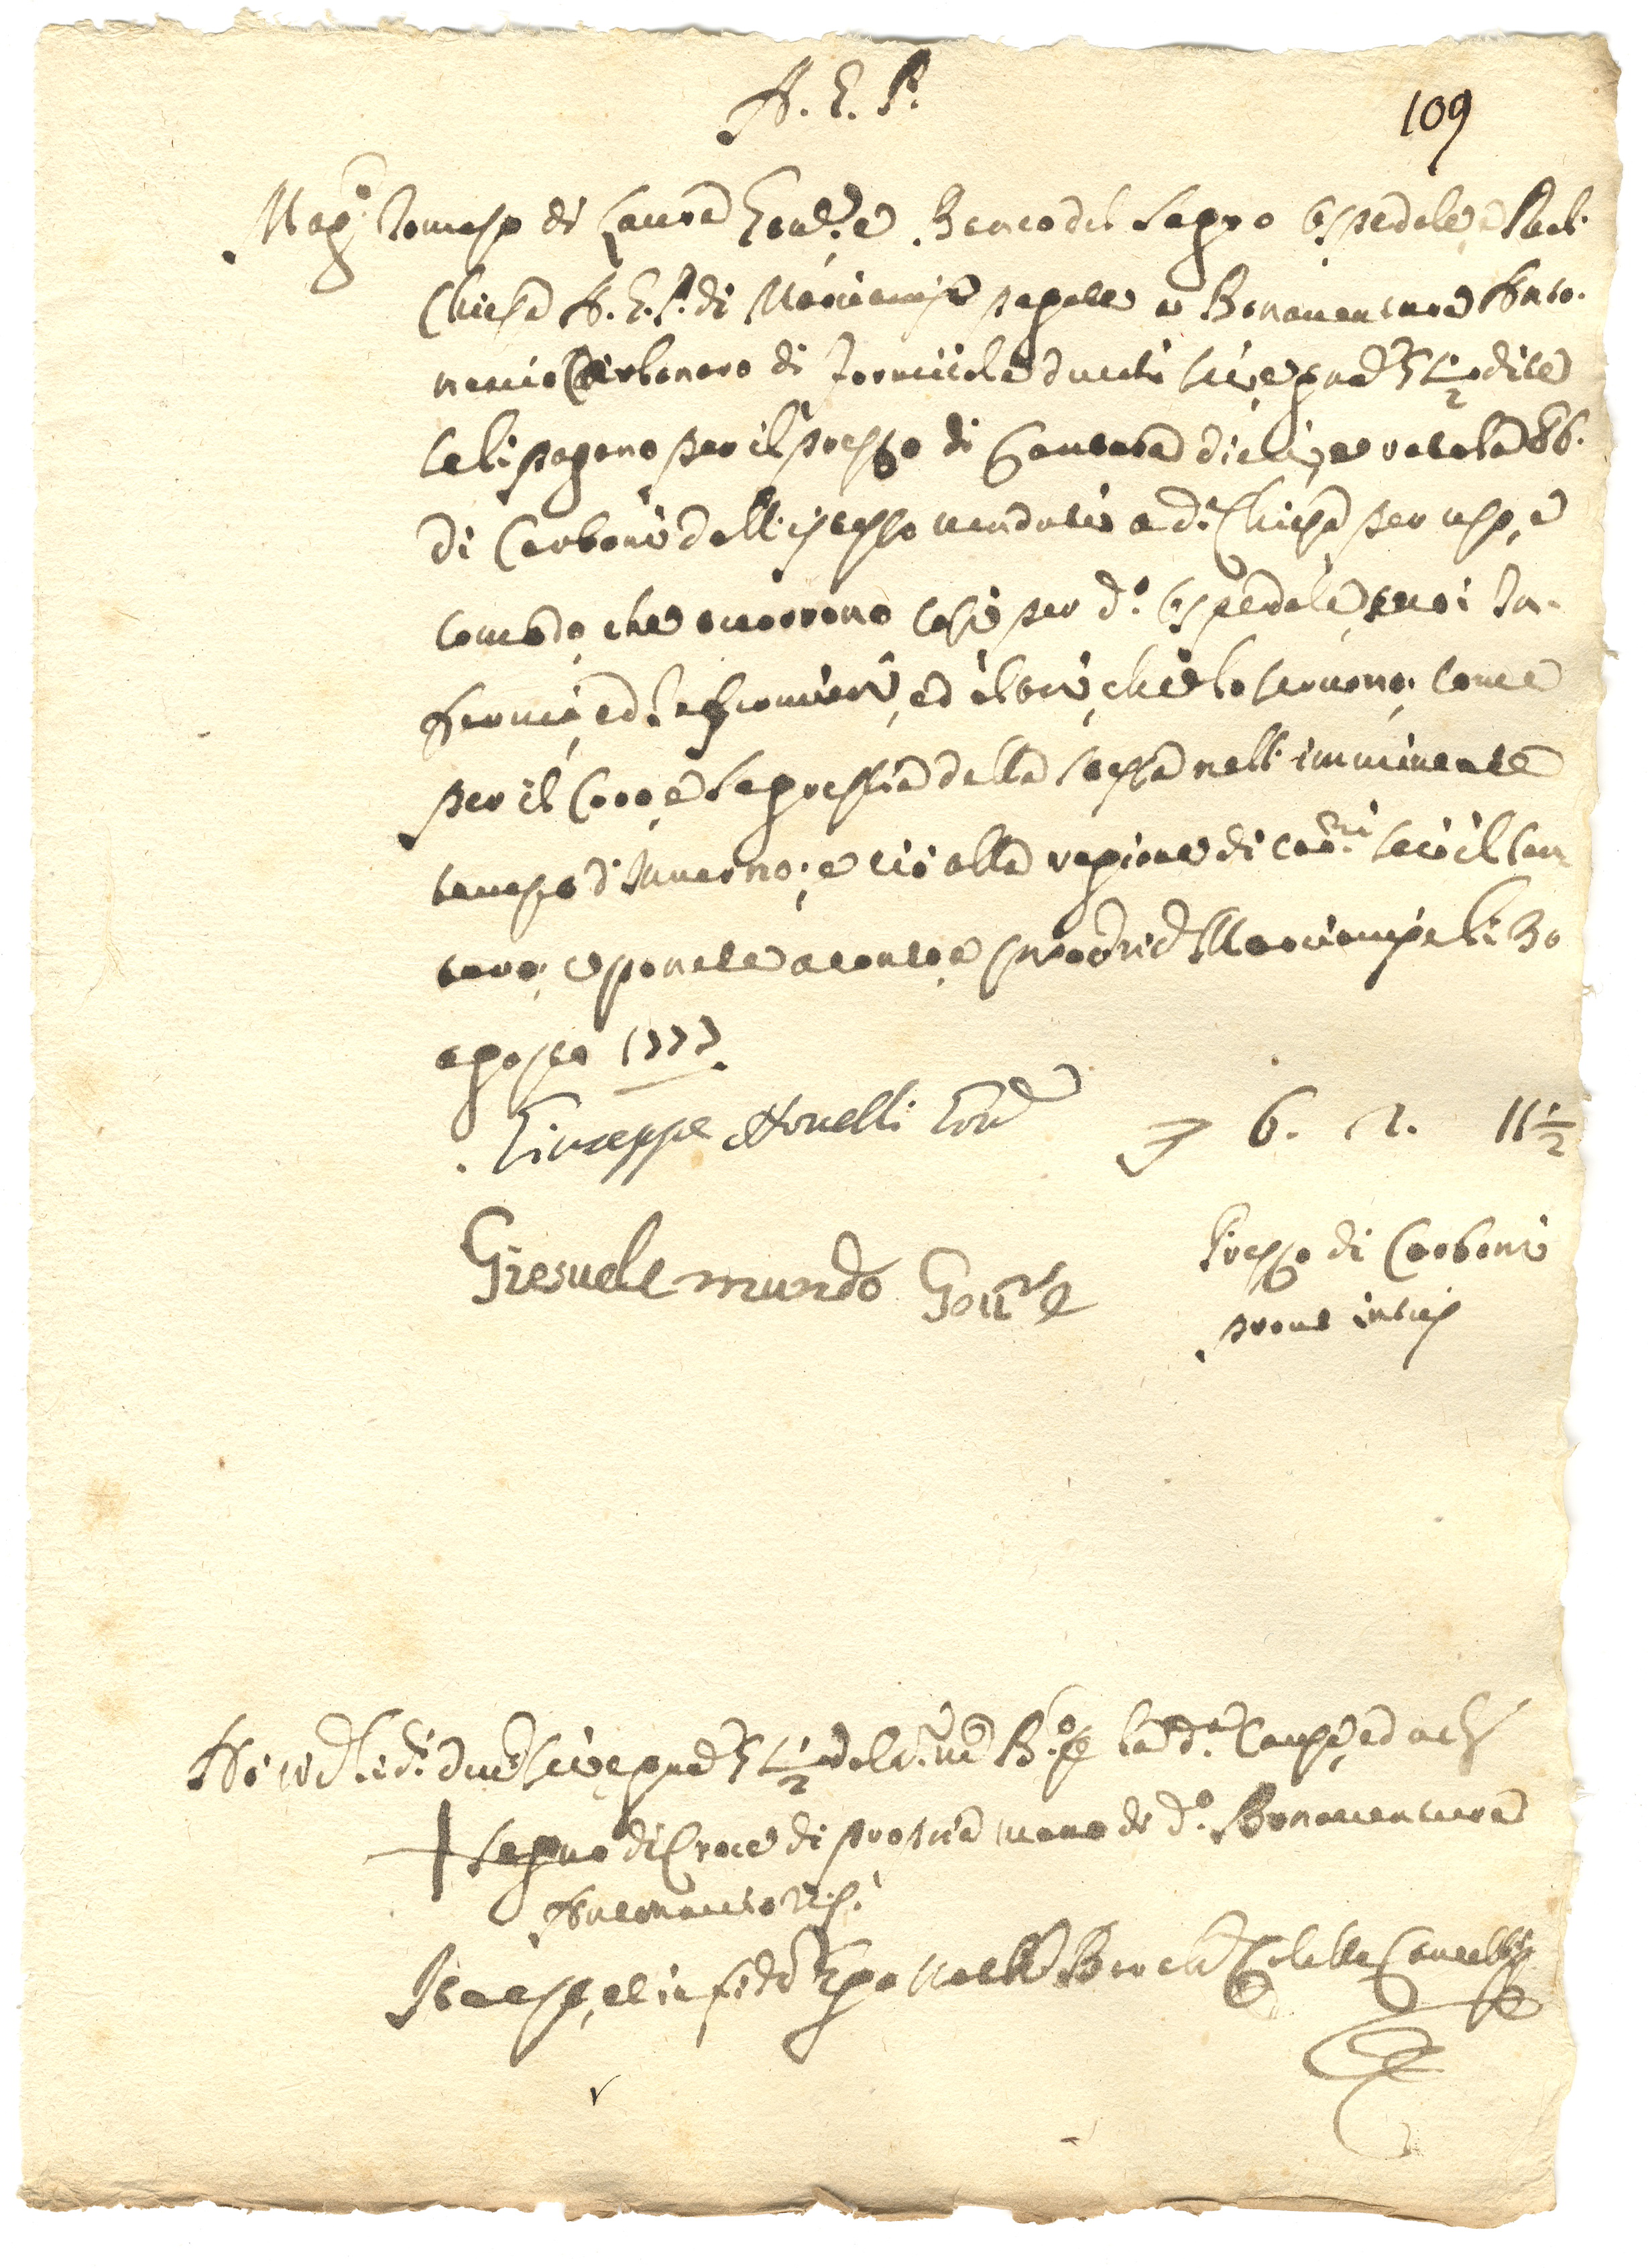 A. G. P.
109
Mag.co Tomaso di Laura Gov.re e Banco del Sagro Ospedale, e Pub.
Chiesa A. G. P. di Marcianise pagate a Bonaventura Anto-
nuccio Carbonaro di Formicola ducati sei, e gra
se li pagano per il prezzo di Cantara dieci, e rotola 86.
di Carboni dall'istesso venduti a d.a Chiesa per uso, e
comodo, che occorrono così per d.o Ospedale, suoi In-
fermi, ed Infermieri, ed altri, che lo servono; come
per il Coro, e Sagrestia della stessa nell'imminente
tempo d'Inverno; e ciò alla ragione di car.ni sei il can
taro; e ponete a conto, Marcianise li 30
agosto 1777.
Giuseppe Novelli Gov.re
6. 2. 11 1/2
Giesuele mundo Gov.re
Prezzo di Carboni
prout intus
Ho li d.i duc. sei, e gra 11 1/2 per la d.a Causa, ed in
+ Segno di Croce di propria mano di d.o Bonaventura
Antonuccio
Ita est, et in fidem Ego Colella Cancell.